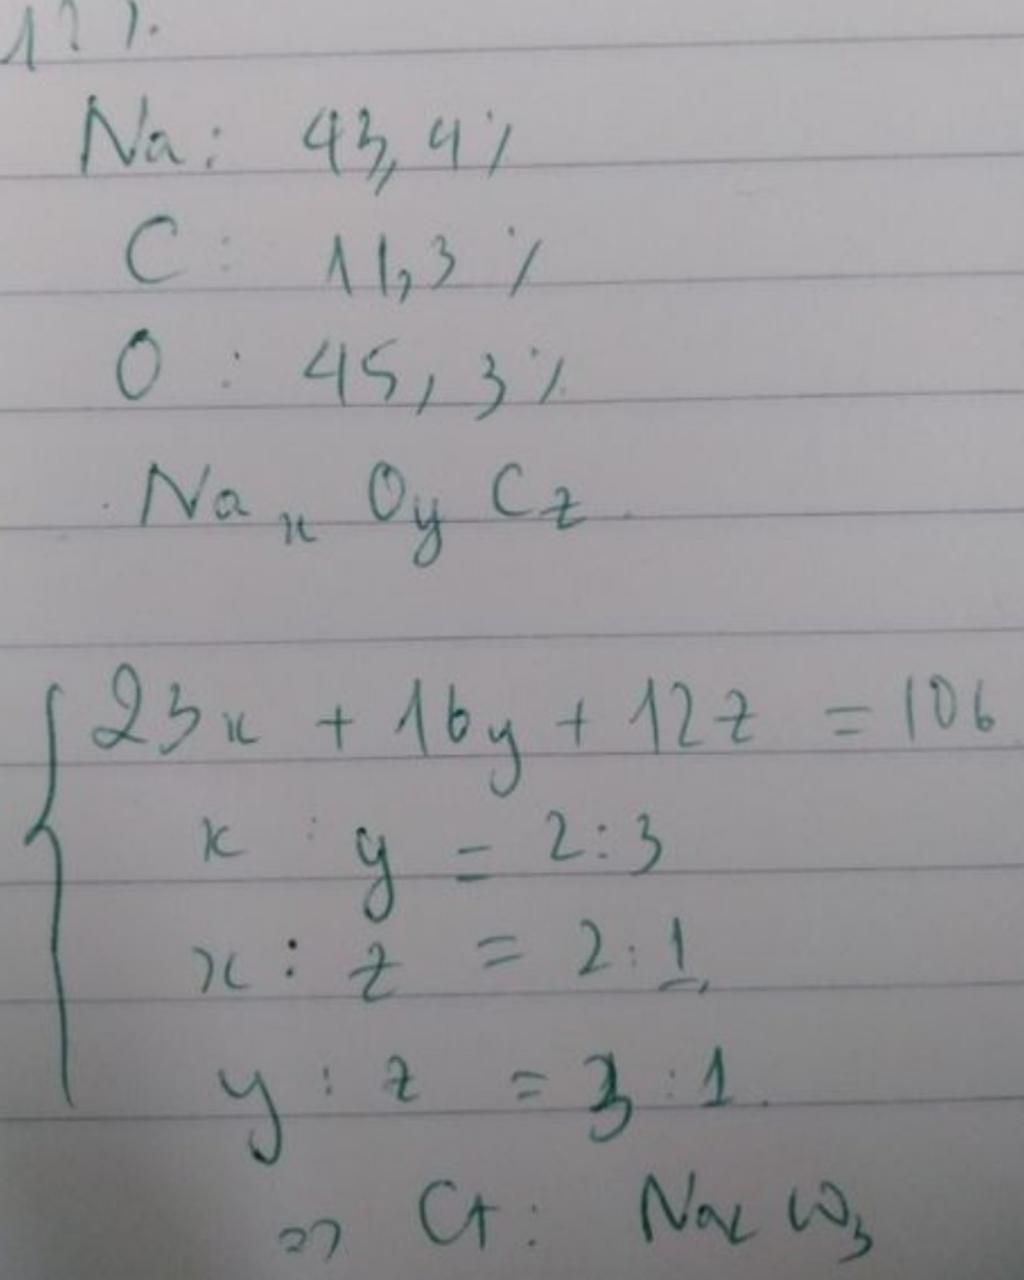 Na: 43,4%
C: 11,3%
O: 45,3%
Naₓ O_y C_z
23x + 16y + 12z = 106
x : y = 2:3
x : z = 2:1
y : z = 3:1
=> Ct: Na₂CO₃